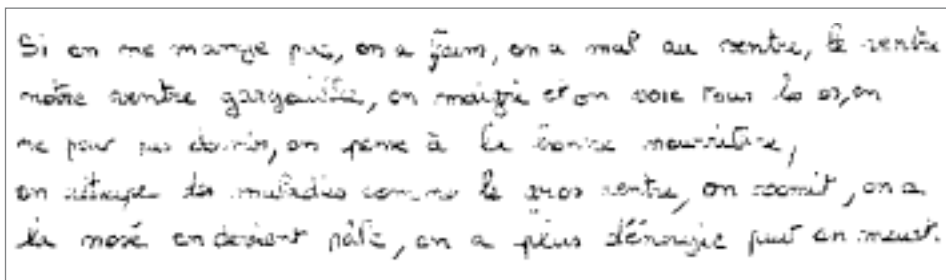 Si on ne mange pas, on a faim, on a mal au ventre, le ventre
notre ventre gargouille, on maigri et on voie tous les os, on
ne peut pas dormir, on pense à la bonne nourriture,
on attrape des maladies comme le gros ventre, on vomit, on a
la nosé on devient pâle, on a plus d'énergie puit on meurt.